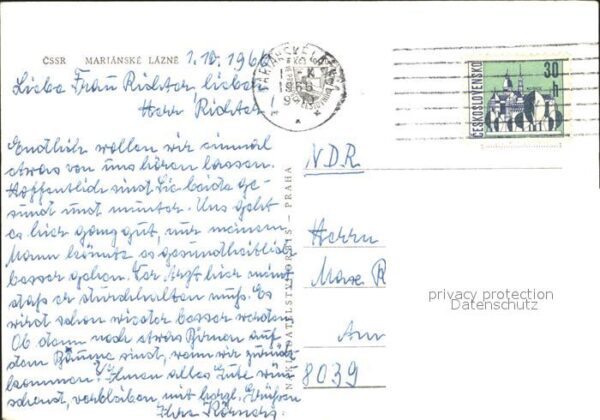 ČSSR MARIÁNSKÉ LÁZNĚ 1.10.1966
Liebe Frau Richter, lieber
Herr Richter!
Endlich wollen wir einmal
etwas von uns hören lassen.
Hoffentlich sind Sie beide ge-
sund und munter. Uns geht
es hier ganz gut, nur meinem
Mann könnte es gesundheitlich
besser gehen. Der Arzt hier meint
daß er durchhalten muß. Es
wird schon wieder besser werden.
Ob dann noch etwas Birnen auf
dem Baume sind, wenn wir zurück-
kommen? Ihnen alles Gute wün-
schend, verbleiben mit herzl. Grüßen
Ihre
NAKLADATELSTVÍ ORBIS - PRAHA
MARIÁNSKÉ LÁZNĚ
ČESKOSLOVENSKO
30 h
NDR
Herrn
Max R
Am
8039
privacy protection
Datenschutz